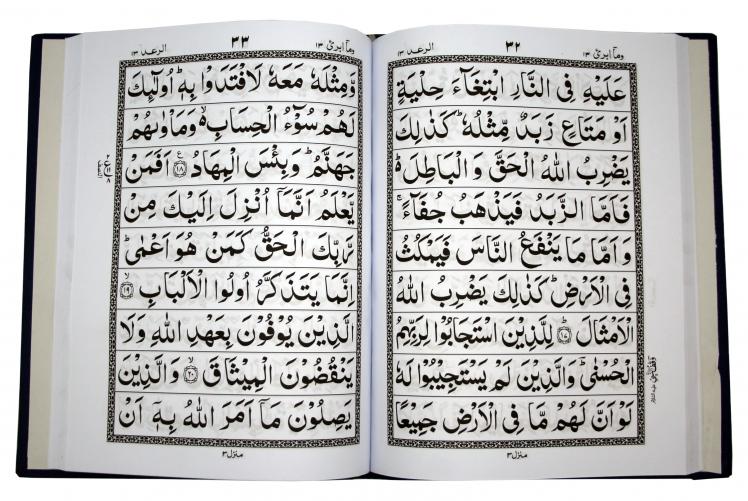 وما ابرئ ١٣
٣٢
الرعد ١٣
عَلَيْهِ فِى النَّارِ ابْتِغَآءَ حِلْيَةٍ
اَوْ مَتَاعٍ زَبَدٌ مِّثْلُهٗ ؕ كَذٰلِكَ
يَضْرِبُ اللّٰهُ الْحَقَّ وَ الْبَاطِلَ ۬ؕ
فَاَمَّا الزَّبَدُ فَيَذْهَبُ جُفَآءً ۚ
وَ اَمَّا مَا يَنْفَعُ النَّاسَ فَيَمْكُثُ
فِى الْاَرْضِ ؕ كَذٰلِكَ يَضْرِبُ اللّٰهُ
الْاَمْثَالَ ؕ‏ ﴿۱۷﴾ لِلَّذِيْنَ اسْتَجَابُوْا لِرَبِّهِمُ
الْحُسْنٰى ؕ وَالَّذِيْنَ لَمْ يَسْتَجِيْبُوْا لَهٗ
لَوْ اَنَّ لَهُمْ مَّا فِى الْاَرْضِ جَمِيْعًا
منزل ٣
وما ابرئ ١٣
٣٣
الرعد ١٣
وَّمِثْلَهٗ مَعَهٗ لَافْتَدَوْا بِهٖ ؕ اُولٰٓئِكَ
لَهُمْ سُوْٓءُ الْحِسَابِ ۙ۬ وَمَاْوٰىهُمْ
جَهَنَّمُ ؕ وَبِئْسَ الْمِهَادُ ﴿۱۸﴾ اَفَمَنْ
يَّعْلَمُ اَنَّمَاۤ اُنْزِلَ اِلَيْكَ مِنْ
رَّبِّكَ الْحَقُّ كَمَنْ هُوَ اَعْمٰى ؕ
اِنَّمَا يَتَذَكَّرُ اُولُوا الْاَلْبَابِ ۙ‏ ﴿۱۹﴾
الَّذِيْنَ يُوْفُوْنَ بِعَهْدِ اللّٰهِ وَلَا
يَنْقُضُوْنَ الْمِيْثَاقَ ۙ‏ ﴿۲۰﴾ وَالَّذِيْنَ
يَصِلُوْنَ مَاۤ اَمَرَ اللّٰهُ بِهٖۤ اَنْ
منزل ٣